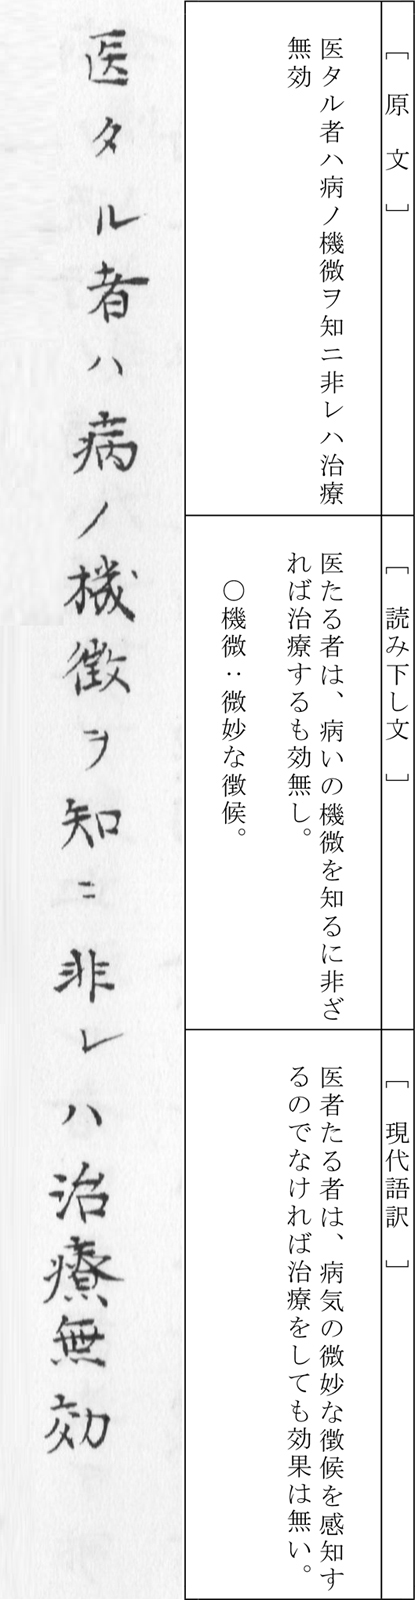 ［ 原 文 ］
医タル者ハ病ノ機微ヲ知ニ非レハ治療
無効
［ 読み下し文 ］
医たる者は、病いの機微を知るに非ざ
れば治療するも効無し。
〇機微：微妙な徴候。
［ 現代語訳 ］
医者たる者は、病気の微妙な徴候を感知す
るのでなければ治療をしても効果は無い。
医タル者ハ病ノ機微ヲ知ニ非レハ治療無効